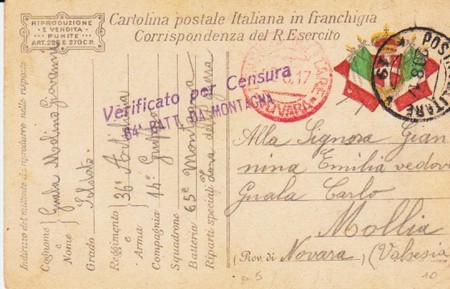 RIPRODUZIONE
E VENDITA
PUNITE
ART. 295 E 270 C.P.
Cartolina postale Italiana in franchigia
Corrispondenza del R. Esercito
Verificato per Censura
BATT. DA MONTAGNA
17
NOVARA
POSTA MILITARE
Indirizzo del mittente da riprodurre nella risposta
Cognome e Nome Guala Molino Giovanni
Grado Soldato
Reggimento e Arma 36° Artiglieria
Compagnia 14° Gruppo
Squadrone
Batteria 65a Montagna
Riparti speciali Zona della guerra
Alla Signora Gian
nina Emilia vedova
Guala Carlo
Mollia
(Prov. di Novara (Valsesia)
10